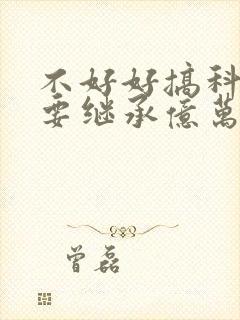 不好好搞科
要继承億萬
曾磊